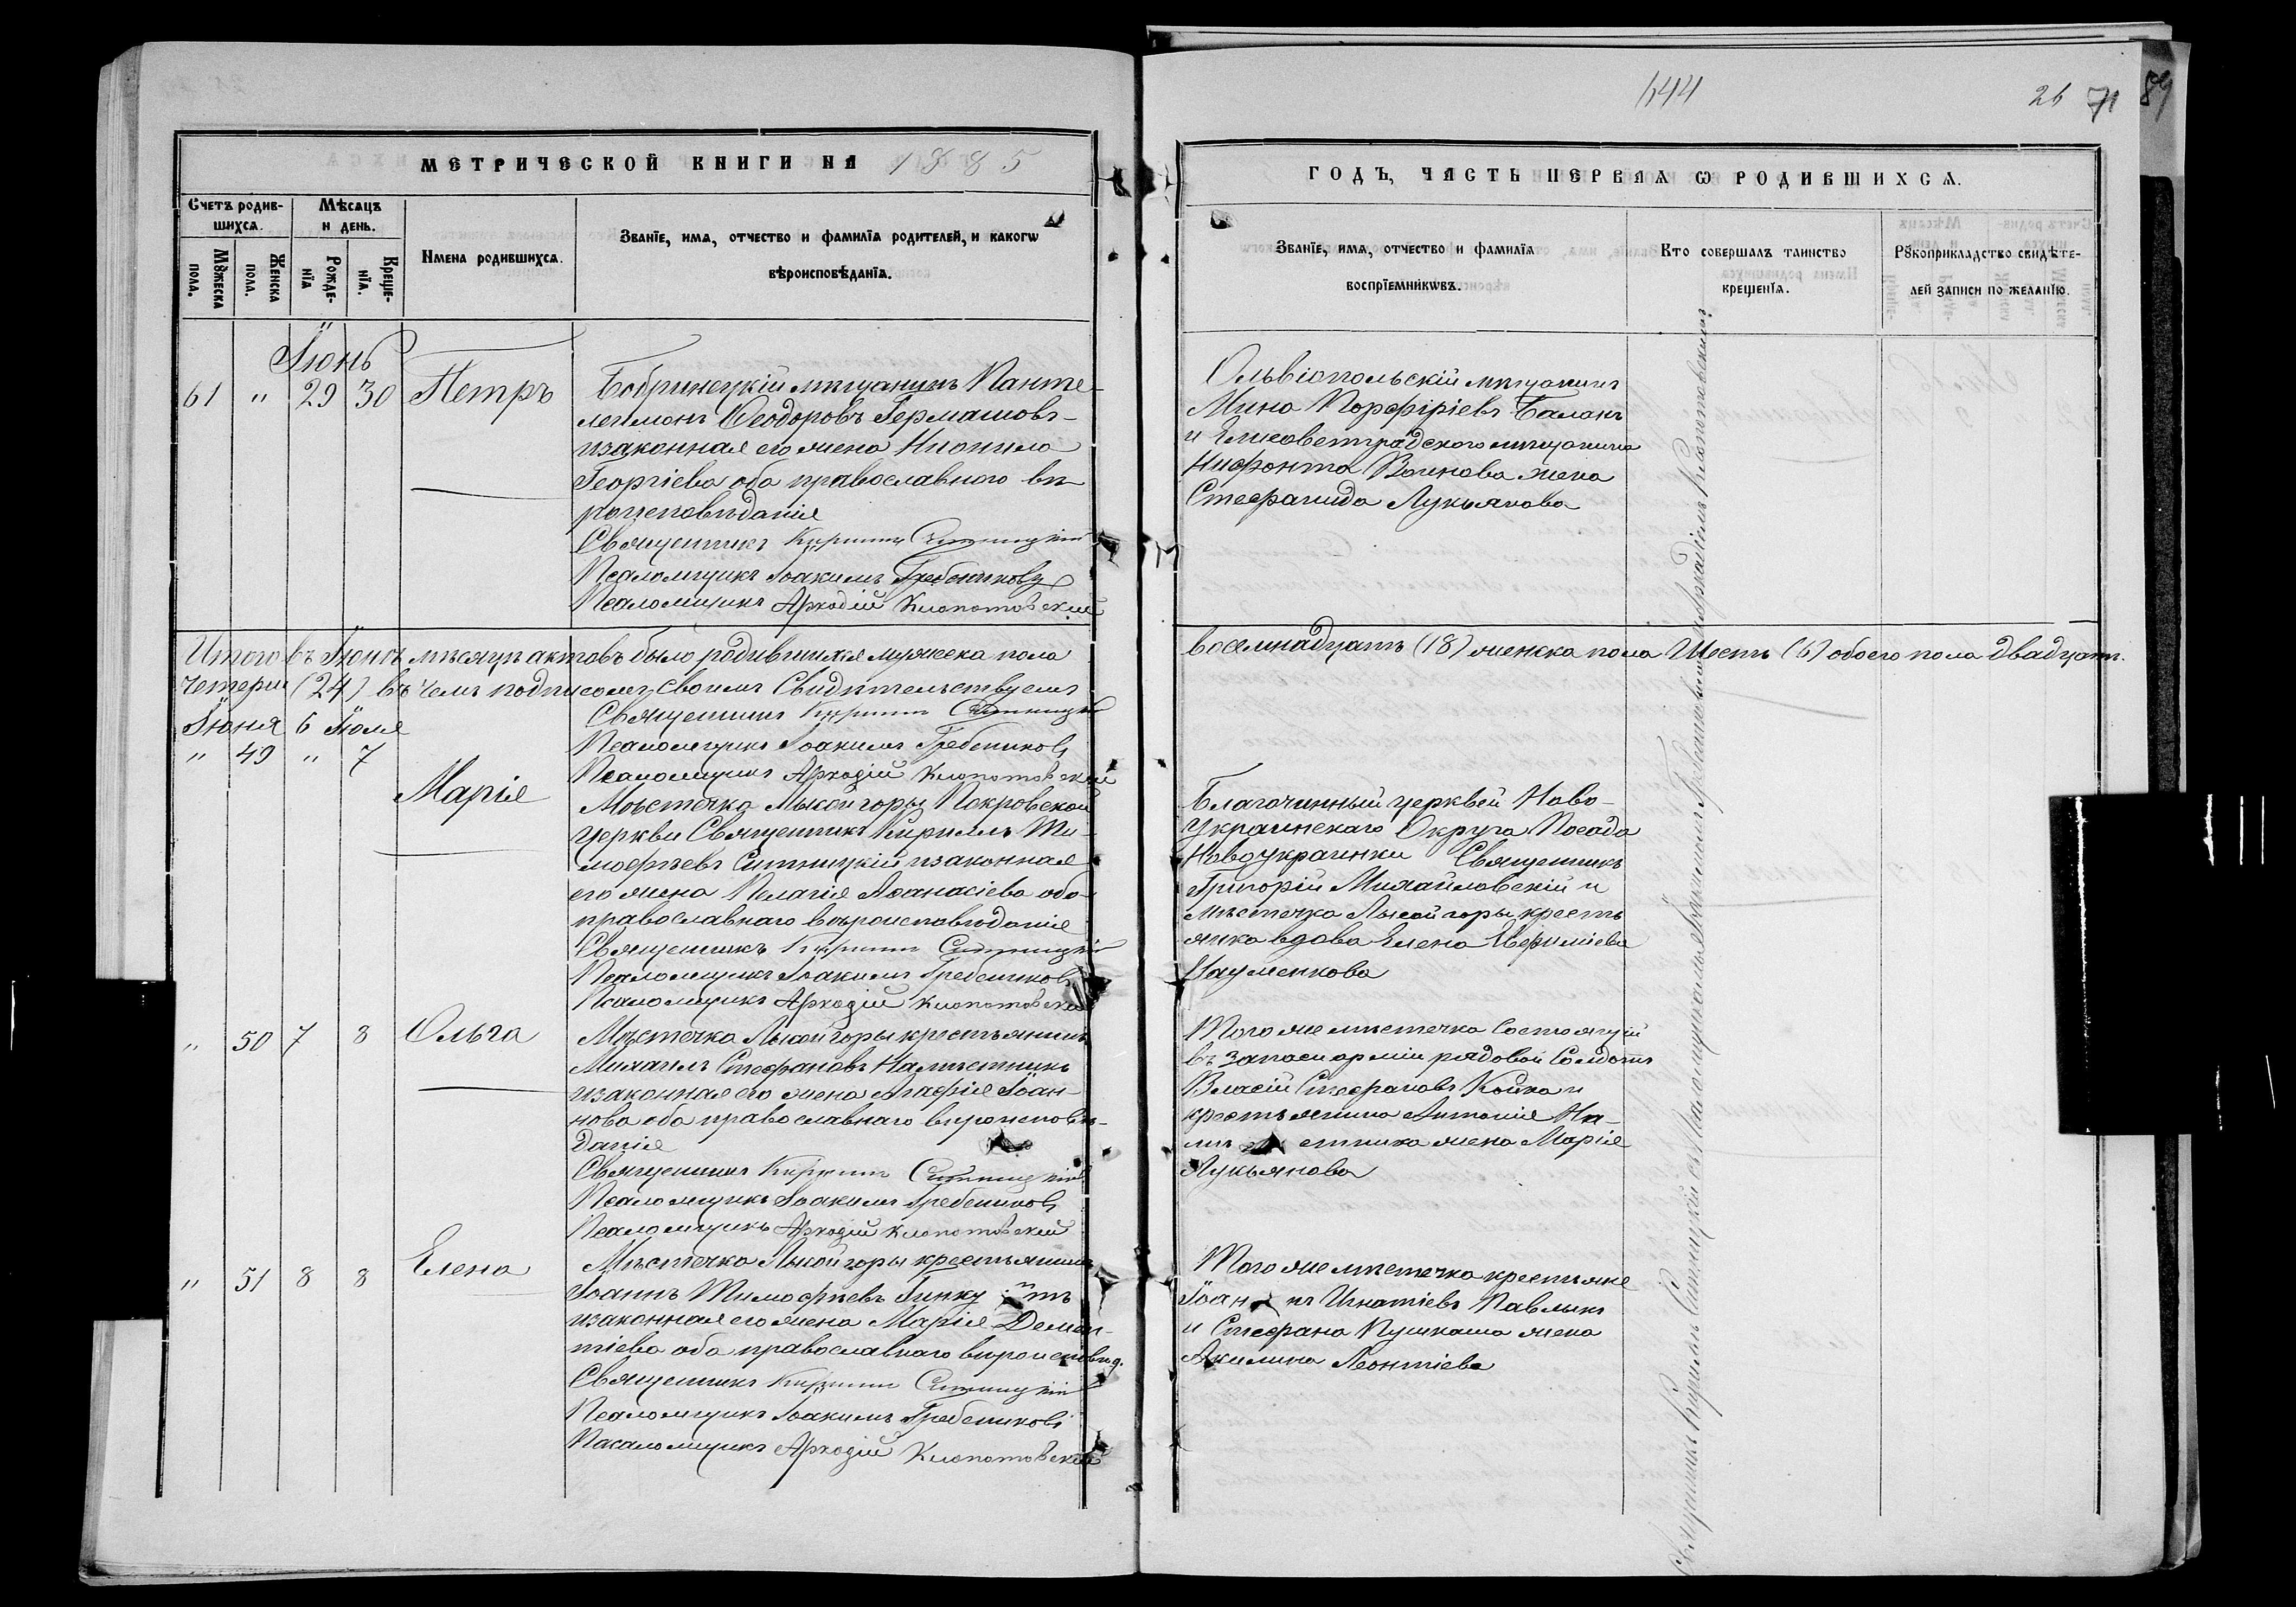 144
26 71 89
МЕТРИЧЕСКОЙ КНИГИ НА 1885
ГОДЪ, ЧАСТЬ ПЕРВАЯ Ѡ РОДИВШИХСѦ.
Счетъ родившихсѧ.
Мꙋжеска пола.
Женска пола.
Мѣсѧцъ и день.
Рожденїѧ
Крещенїѧ.
Имена родившихсѧ.
Званїе, имѧ, отчество и фамилїѧ родителей, и какогѡ
вѣроисповѣданїѧ.
Званїе, имѧ, отчество и фамилїѧ
воспрїемникѡвъ.
Кто совершалъ таинство
крещенїѧ.
Рꙋкоприкладство свидѣте-
лей записи по желанїю.
Іюнь
61 " 29 30 Петръ
Бобринецкій мѣщанинъ Панте-
леимонъ Ѳеодоровъ Гермашовъ
и законная его жена Неонила
Георгіева оба православного вѣ-
роисповѣданія
Священникъ Кириллъ Ситницкій
Псаломщикъ Іоакимъ Гребениковъ
Псаломщикъ Аркадій Клопотовскій
Ольвіопольскій мѣщанинъ
Мина Порфиріевъ Балакъ
и Елисаветградского мѣщанина
Нифонта Воинова жена
Стефанида Лукьянова
Итого въ Іюнѣ мѣсяцѣ актовъ было родившихся мужеска пола восемнадцать (18) женска пола Шесть (6) обоего пола двадцать
четыри (24) въ чемъ подписомъ своимъ Свидѣтельствуемъ
Священникъ Кириллъ Ситницкій
Псаломщикъ Іоакимъ Гребениковъ
Псаломщикъ Аркадій Клопотовский
Іюня 6 Іюля
" 49 " 7 Марія
Мѣстечка Лысой горы Покровской
Церкви Священникъ Кириллъ Ти-
мофѣевъ Ситницкій и законная
его жена Пелагія Аѳанасіева оба
православнаго вѣроисповѣданія
Священникъ Кириллъ Ситницкій
Псаломщикъ Іоакимъ Гребениковъ
Псаломщикъ Аркадій Клопотовский
Благочинный церквей Ново-
Украинскаго Округа Посада
Новоукраинки Священникъ
Григорій Михайловскій и
мѣстечка Лысой горы кресть
янка вдова Елена Евфиміева
Науменкова
" 50 7 8 Ольга
Мѣстечка Лысой горы крестьянинъ
Михаилъ Стефановъ Намѣстникъ
и законная его жена Агафія Іоан-
нова оба православнаго вѣроисповѣ-
данія
Священникъ Кириллъ Ситницкій
Псаломщикъ Іоакимъ Гребениковъ
Псаломщикъ Аркадій Клопотовскій
Того же мѣстечка Состоящій
въ запаси арміи рядовой Солдатъ
Власій Стефановъ Койка и
крестьянина Антонія На-
мѣ стника жена Марія
Лукьянова
" 51 8 8 Елена
Мѣстечка Лысой горы крестьянинъ
Іоаннъ Тимофѣевъ
и законная его жена Марія Демен-
тіева оба православнаго вѣроисповѣд.
Священникъ Кириллъ Ситницкій
Псаломщикъ Іоакимъ Гребениковъ
Пасаломщикъ Аркадій Клопотовскій
Того же мѣстечка крестьяне
Іоан нъ Игнатіевъ Павлыкъ
и Стефана Пушкаша жена
Акилина Леонтіева
Священникъ Кириллъ Ситницкій съ Псаломщиками Іоакимомъ Гребениковымъ и Аркадіемъ Клопотовскимъ